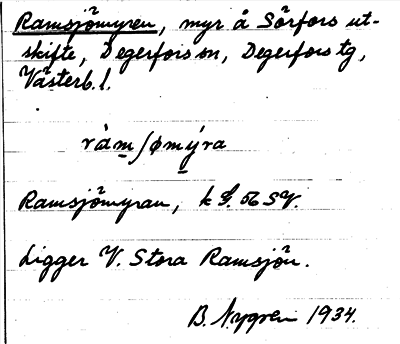 Ramsjömyren, myr å Sörfors ut-
skifte, Degerfors sn, Degerfors tg,
Västerb. l.
ràm̲ʃømý̲ra
Ramsjömyran, k 56 SV.
Ligger V. Stora Ramsjön.
B. Nygren 1934.